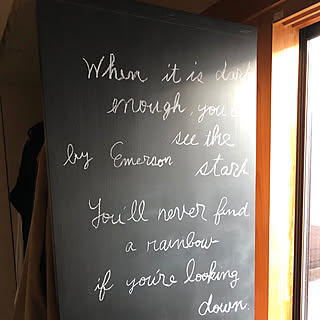 When it is dark
enough, you'll
see the
by Emerson stars
You'll never find
a rainbow
if you're looking
down.